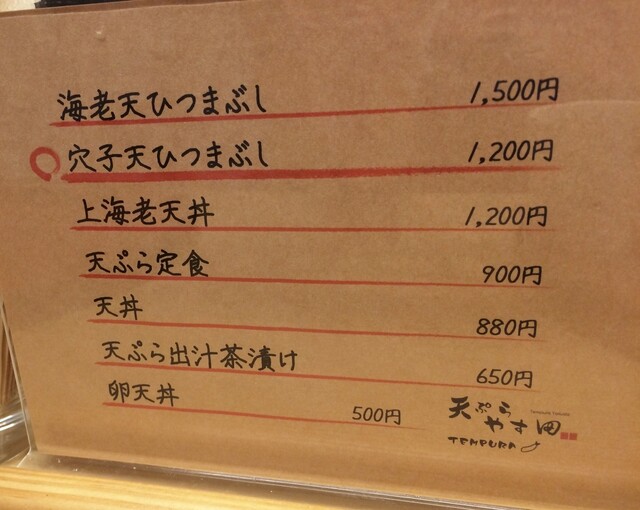 海老天ひつまぶし 1,500円
穴子天ひつまぶし 1,200円
上海老天丼 1,200円
天ぷら定食 900円
天丼 880円
天ぷら出汁茶漬け 650円
卵天丼 500円
天ぷら
やす田
TEMPURA